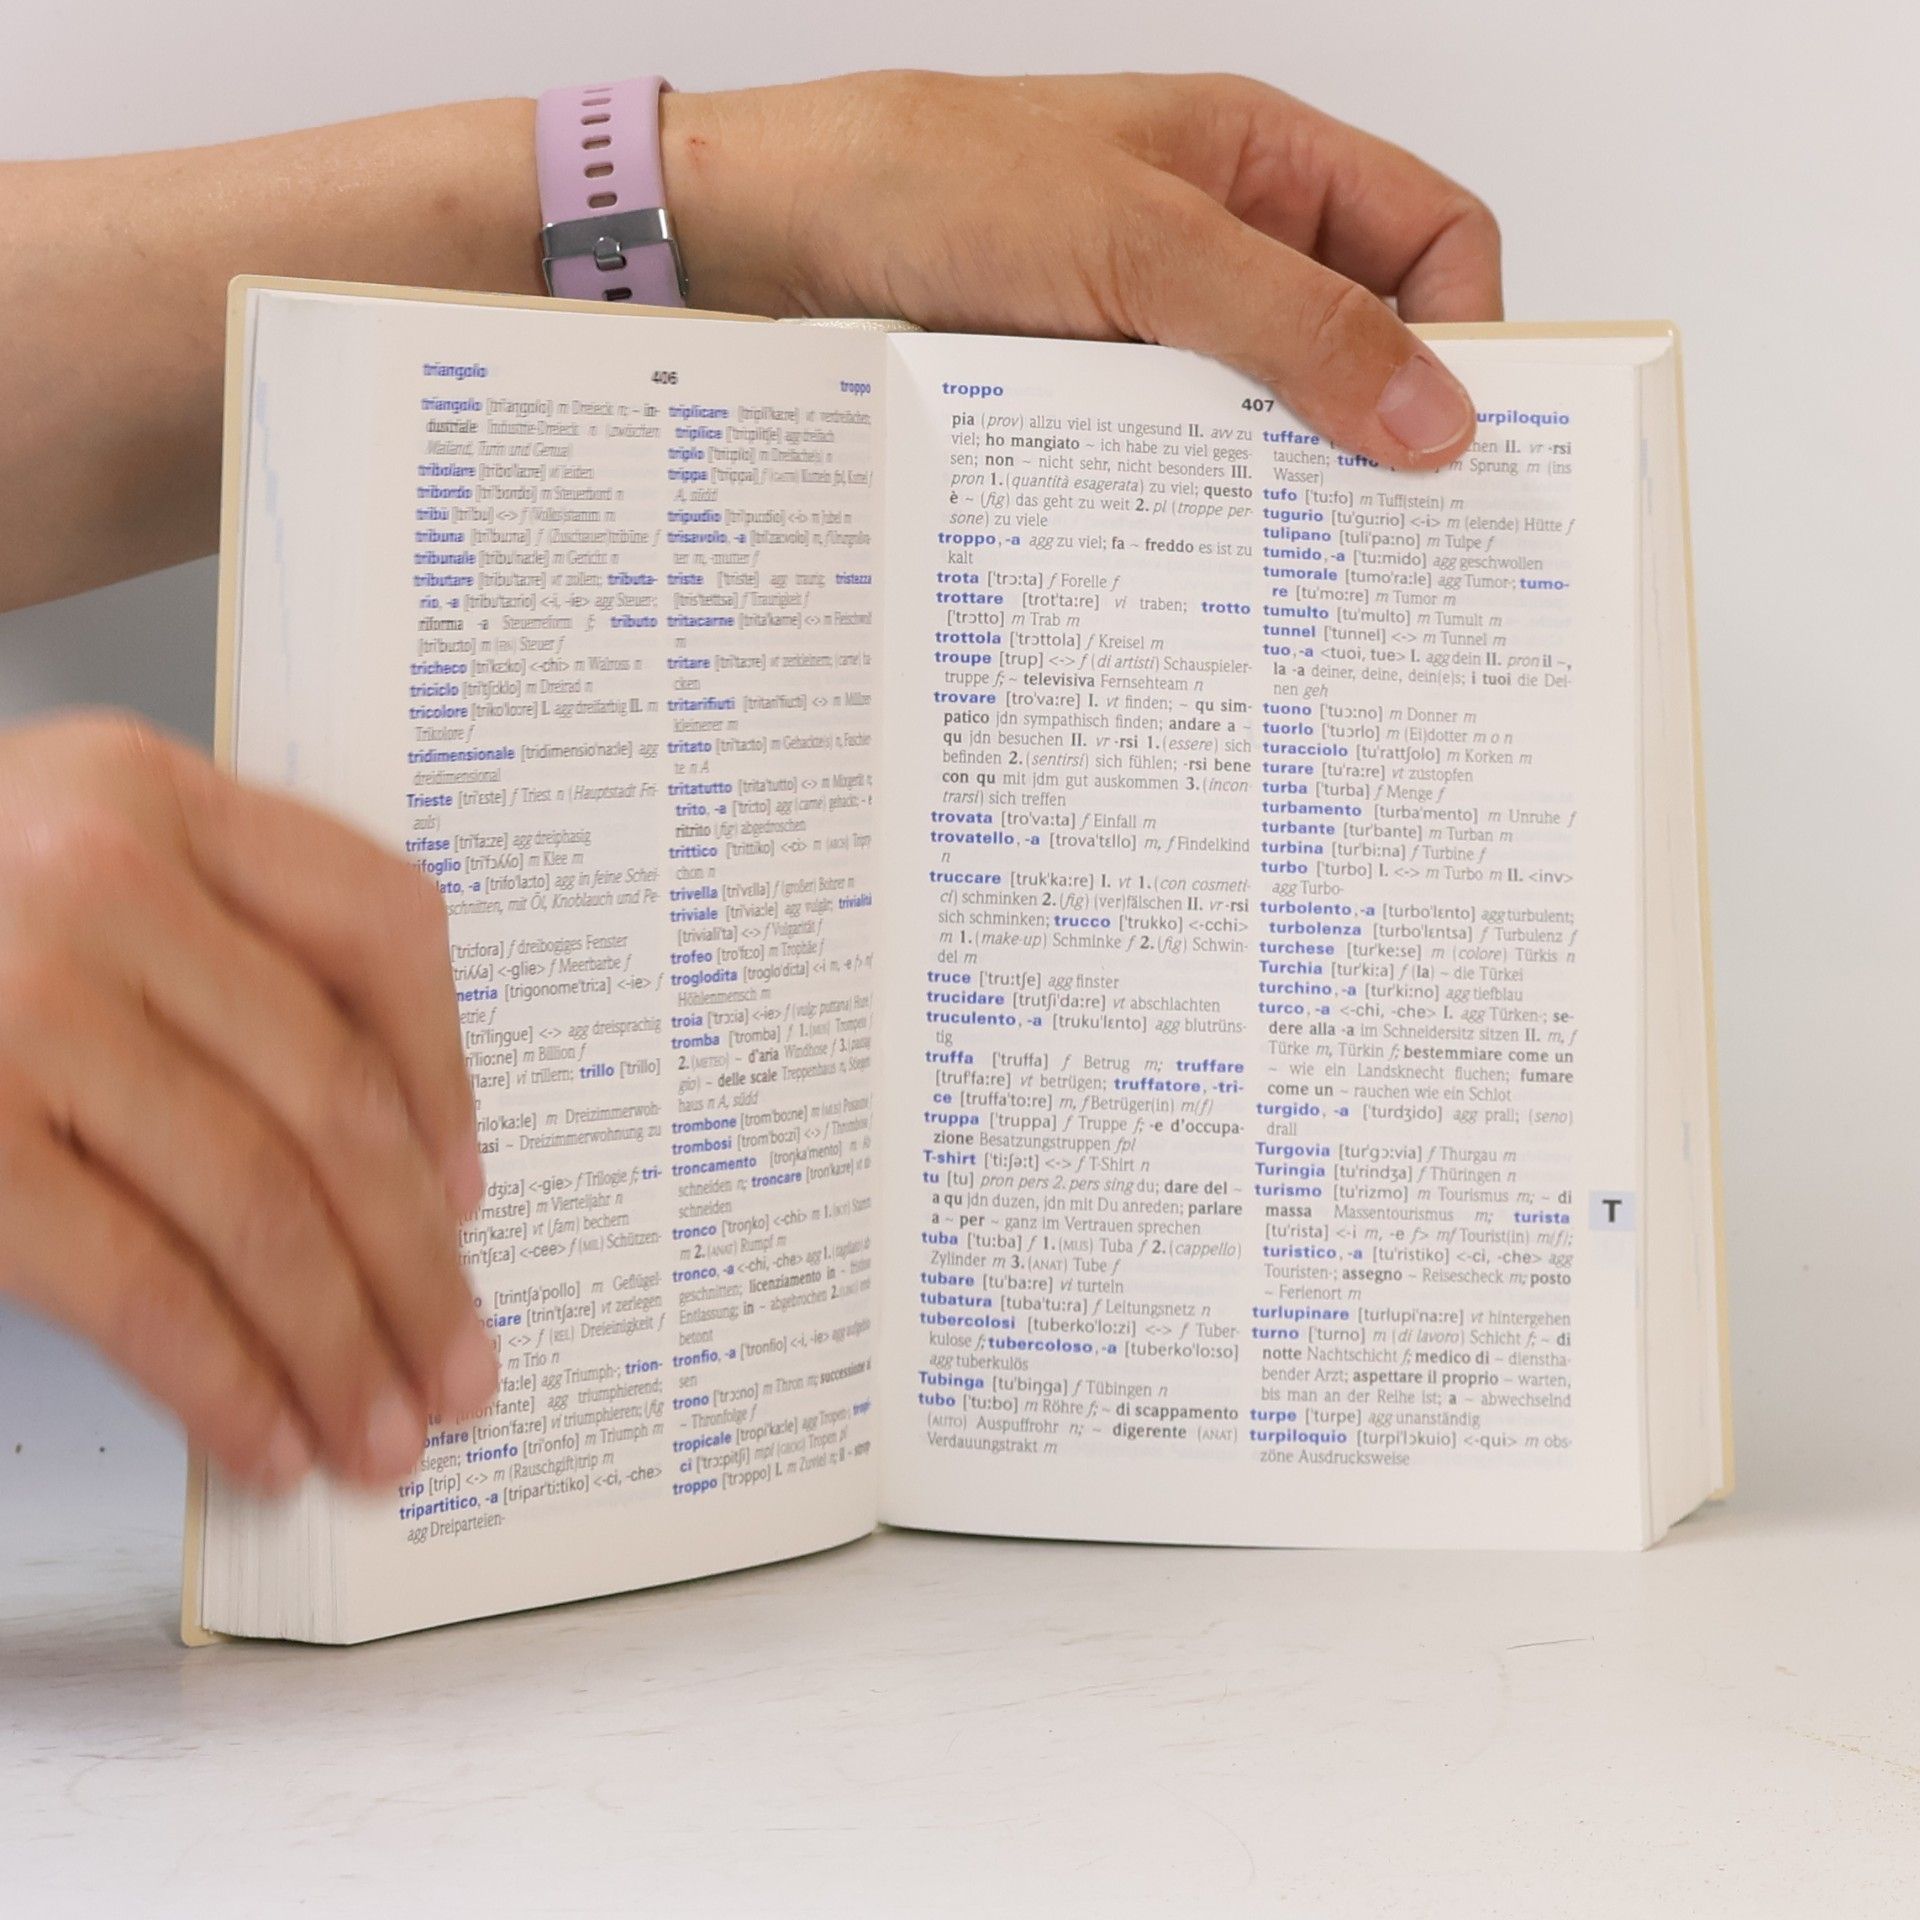 triangolo
406
troppo
triangolo [tri'aŋgolo] m Dreieck n; ~ in-
dustriale Industrie-Dreieck n (zwischen
Mailand, Turin und Genua)
tribolare [tribo'la:re] vi leiden
tribordo [tri'bordo] m Steuerbord n
tribù [tri'bu] <-> f (Volks)stamm m
tribuna [tri'bu:na] f (Zuschauer)tribüne f
tribunale [tribu'na:le] m Gericht n
tributare [tribu'ta:re] vt zollen; tributa-
rio, -a [tribu'ta:rio] <-i, -ie> agg Steuer-;
riforma -a Steuerreform f; tributo
[tri'bu:to] m (FIN) Steuer f
tricheco [tri'kɛ:ko] <-chi> m Walross n
triciclo [tri'tʃi:klo] m Dreirad n
tricolore [triko'lo:re] I. agg dreifarbig II. m
Trikolore f
tridimensionale [tridimensio'na:le] agg
dreidimensional
Trieste [tri'ɛste] f Triest n (Hauptstadt Fri-
auls)
trifase [tri'fa:ze] agg dreiphasig
rifoglio [tri'fɔʎʎo] m Klee m
lato, -a [trifo'la:to] agg in feine Schei-
schnitten, mit Öl, Knoblauch und Pe-
['tri:fora] f dreibogiges Fenster
['triʎʎa] <-glie> f Meerbarbe f
netria [trigonome'tri:a] <-ie> f
etrie f
[tri'liŋgue] <-> agg dreisprachig
ri'lio:ne] m Billion f
'la:re] vi trillern; trillo ['trillo]
n
rilo'ka:le] m Dreizimmerwoh-
tasi ~ Dreizimmerwohnung zu
dʒi:a] <-gie> f Trilogie f; tri-
'mɛstre] m Vierteljahr n
[triŋ'ka:re] vt (fam) bechern
rin'tʃɛ:a] <-cee> f (MIL) Schützen-
o [trintʃa'pollo] m Geflügel-
ciare [trin'tʃa:re] vt zerlegen
a] <-> f (REL) Dreieinigkeit f
m Trio n
'fa:le] agg Triumph-; trion-
'fante] agg triumphierend;
onfare [trion'fa:re] vi triumphieren; (fig
siegen; trionfo [tri'onfo] m Triumph m
trip [trip] <-> m (Rauschgift)trip m
tripartitico, -a [tripar'ti:tiko] <-ci, -che>
agg Dreiparteien-
triplicare [tripli'ka:re] vt verdreifachen;
triplice ['tri:plitʃe] agg dreifach
triplo ['tri:plo] m Dreifache(s) n
trippa ['trippa] f (GASTR) Kutteln fpl, Kuttel f
A, südd
tripudio [tri'pu:dio] <-i> m Jubel m
trisavolo, -a [tri'za:volo] m, f Ururgroßva-
ter m, -mutter f
triste ['triste] agg traurig; tristezza
[tris'tettsa] f Traurigkeit f
tritacarne [trita'karne] <-> m Fleischwolf
m
tritare [tri'ta:re] vt zerkleinern; (carne) ha-
cken
tritarifiuti [tritari'fiu:ti] <-> m Müllzer-
kleinerer m
tritato [tri'ta:to] m Gehackte(s) n, Faschier-
te n A
tritatutto [trita'tutto] <-> m Mixgerät n;
trito, -a ['tri:to] agg (carne) gehackt; ~ e
ritrito (fig) abgedroschen
trittico ['trittiko] <-ci> m (ARCH) Tripty-
chon n
trivella [tri'vɛlla] f (großer) Bohrer m
triviale [tri'via:le] agg vulgär; trivialità
[triviali'ta] <-> f Vulgarität f
trofeo [tro'fɛ:o] m Trophäe f
troglodita [troglo'di:ta] <-i m, -e f> mf
Höhlenmensch m
troia ['trɔ:ia] <-ie> f (vulg: puttana) Hure f
tromba ['tromba] f 1. (MUS) Trompete f
2. (METEO) ~ d'aria Windhose f 3. (passag-
gio) ~ delle scale Treppenhaus n, Stiegen-
haus n A, südd
trombone [trom'bo:ne] m (MUS) Posaune f
trombosi [trom'bo:zi] <-> f Thrombose f
troncamento [troŋka'mento] m Ab-
schneiden n; troncare [troŋ'ka:re] vt ab-
schneiden
tronco ['troŋko] <-chi> m 1. (BOT) Stamm
m 2. (ANAT) Rumpf m
tronco, -a <-chi, -che> agg 1. (tagliato) ab-
geschnitten; licenziamento in ~ fristlose
Entlassung; in ~ abgebrochen 2. (LING) end-
betont
tronfio, -a ['tronfio] <-i, -ie> agg aufgebla-
sen
trono ['trɔ:no] m Thron m; successione al
~ Thronfolge f
tropicale [tropi'ka:le] agg Tropen-; tropi-
ci ['trɔ:pitʃi] mpl (GEOG) Tropen pl
troppo ['trɔppo] I. m Zuviel n; il ~ strop-
troppo
407
urpiloquio
pia (prov) allzu viel ist ungesund II. avv zu
viel; ho mangiato ~ ich habe zu viel geges-
sen; non ~ nicht sehr, nicht besonders III.
pron 1. (quantità esagerata) zu viel; questo
è ~ (fig) das geht zu weit 2. pl (troppe per-
sone) zu viele
troppo, -a agg zu viel; fa ~ freddo es ist zu
kalt
trota ['trɔ:ta] f Forelle f
trottare [trot'ta:re] vi traben; trotto
['trɔtto] m Trab m
trottola ['trɔttola] f Kreisel m
troupe [trup] <-> f (di artisti) Schauspieler-
truppe f; ~ televisiva Fernsehteam n
trovare [tro'va:re] I. vt finden; ~ qu sim-
patico jdn sympathisch finden; andare a ~
qu jdn besuchen II. vr -rsi 1. (essere) sich
befinden 2. (sentirsi) sich fühlen; -rsi bene
con qu mit jdm gut auskommen 3. (incon-
trarsi) sich treffen
trovata [tro'va:ta] f Einfall m
trovatello, -a [trova'tɛllo] m, f Findelkind
n
truccare [truk'ka:re] I. vt 1. (con cosmeti-
ci) schminken 2. (fig) (ver)fälschen II. vr -rsi
sich schminken; trucco ['trukko] <-cchi>
m 1. (make-up) Schminke f 2. (fig) Schwin-
del m
truce ['tru:tʃe] agg finster
trucidare [trutʃi'da:re] vt abschlachten
truculento, -a [truku'lɛnto] agg blutrüns-
tig
truffa ['truffa] f Betrug m; truffare
[truf'fa:re] vt betrügen; truffatore, -tri-
ce [truffa'to:re] m, f Betrüger(in) m(f)
truppa ['truppa] f Truppe f; -e d'occupa-
zione Besatzungstruppen fpl
T-shirt ['ti:ʃə:t] <-> f T-Shirt n
tu [tu] pron pers 2. pers sing du; dare del ~
a qu jdn duzen, jdn mit Du anreden; parlare
a ~ per ~ ganz im Vertrauen sprechen
tuba ['tu:ba] f 1. (MUS) Tuba f 2. (cappello)
Zylinder m 3. (ANAT) Tube f
tubare [tu'ba:re] vi turteln
tubatura [tuba'tu:ra] f Leitungsnetz n
tubercolosi [tuberko'lo:zi] <-> f Tuber-
kulose f; tubercoloso, -a [tuberko'lo:so]
agg tuberkulös
Tubinga [tu'biŋga] f Tübingen n
tubo ['tu:bo] m Röhre f; ~ di scappamento
(AUTO) Auspuffrohr n; ~ digerente (ANAT)
Verdauungstrakt m
tuffare [
hen II. vr -rsi
tauchen; tuffo m Sprung m (ins
Wasser)
tufo ['tu:fo] m Tuff(stein) m
tugurio [tu'gu:rio] <-i> m (elende) Hütte f
tulipano [tuli'pa:no] m Tulpe f
tumido, -a ['tu:mido] agg geschwollen
tumorale [tumo'ra:le] agg Tumor-; tumo-
re [tu'mo:re] m Tumor m
tumulto [tu'multo] m Tumult m
tunnel ['tunnel] <-> m Tunnel m
tuo, -a <tuoi, tue> I. agg dein II. pron il ~,
la -a deiner, deine, dein(e)s; i tuoi die Dei-
nen geh
tuono ['tuɔ:no] m Donner m
tuorlo ['tuɔrlo] m (Ei)dotter m o n
turacciolo [tu'rattʃolo] m Korken m
turare [tu'ra:re] vt zustopfen
turba ['turba] f Menge f
turbamento [turba'mento] m Unruhe f
turbante [tur'bante] m Turban m
turbina [tur'bi:na] f Turbine f
turbo ['turbo] I. <-> m Turbo m II. <inv>
agg Turbo-
turbolento, -a [turbo'lɛnto] agg turbulent;
turbolenza [turbo'lɛntsa] f Turbulenz f
turchese [tur'ke:se] m (colore) Türkis n
Turchia [tur'ki:a] f (la) ~ die Türkei
turchino, -a [tur'ki:no] agg tiefblau
turco, -a <-chi, -che> I. agg Türken-; se-
dere alla -a im Schneidersitz sitzen II. m, f
Türke m, Türkin f; bestemmiare come un
~ wie ein Landsknecht fluchen; fumare
come un ~ rauchen wie ein Schlot
turgido, -a ['turdʒido] agg prall; (seno)
drall
Turgovia [tur'gɔ:via] f Thurgau m
Turingia [tu'rindʒa] f Thüringen n
turismo [tu'rizmo] m Tourismus m; ~ di
massa Massentourismus m; turista
[tu'rista] <-i m, -e f> mf Tourist(in) m(f);
turistico, -a [tu'ristiko] <-ci, -che> agg
Touristen-; assegno ~ Reisescheck m; posto
~ Ferienort m
turlupinare [turlupi'na:re] vt hintergehen
turno ['turno] m (di lavoro) Schicht f; ~ di
notte Nachtschicht f; medico di ~ dienstha-
bender Arzt; aspettare il proprio ~ warten,
bis man an der Reihe ist; a ~ abwechselnd
turpe ['turpe] agg unanständig
turpiloquio [turpi'lɔkuio] <-qui> m obs-
zöne Ausdrucksweise
T